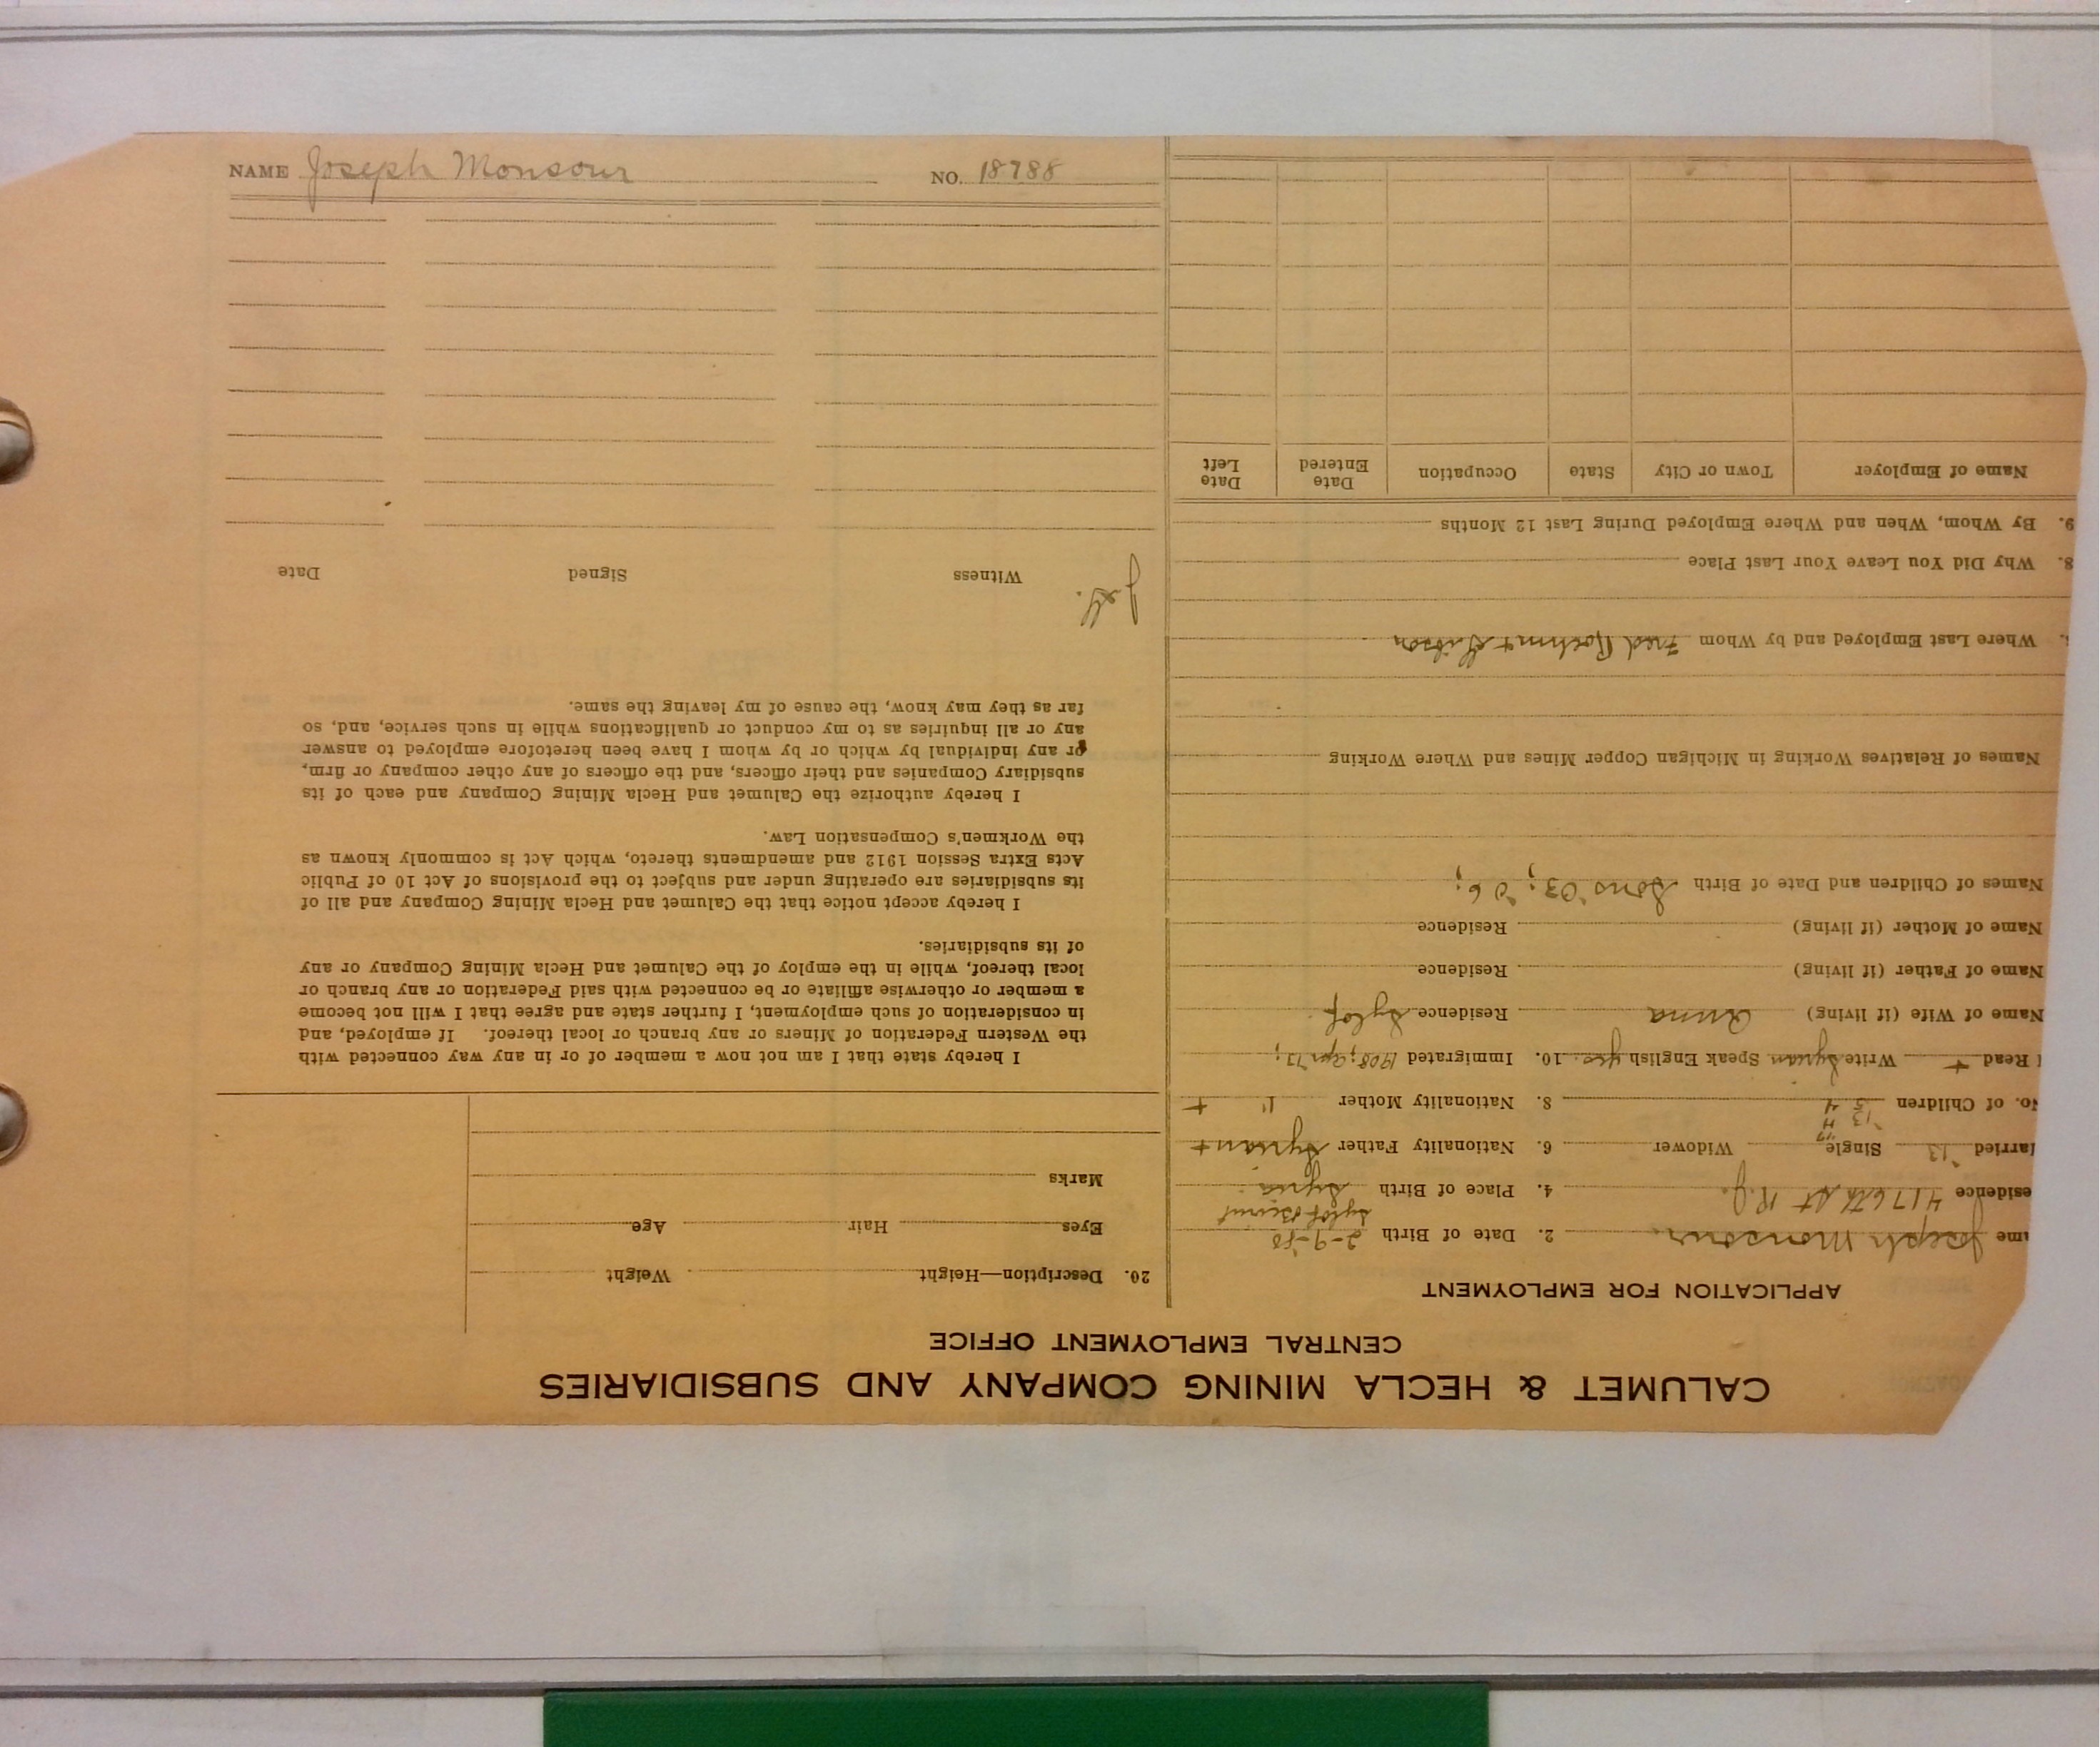 NAME Joseph Monsour NO. 18788
CALUMET & HECLA MINING COMPANY AND SUBSIDIARIES
CENTRAL EMPLOYMENT OFFICE
APPLICATION FOR EMPLOYMENT
ume Joseph Monsour 2. Date of Birth 2-9-'80
esidence 417 6th St R.J. 4. Place of Birth Syria
arried '13 Single Widower 6. Nationality Father Syrian +
No. of Children 8. Nationality Mother " +
Read + Write Syrian Speak English yes. 10. Immigrated 1908; Apr '13;
Name of Wife (if living) Anna Residence
Name of Father (if living) Residence
Name of Mother (if living) Residence
Names of Children and Date of Birth Sons '03; '06;
Names of Relatives Working in Michigan Copper Mines and Where Working
Where Last Employed and by Whom Fred + Gibson
8. Why Did You Leave Your Last Place
9. By Whom, When and Where Employed During Last 12 Months
Name of Employer Town or City State Occupation Date Entered Date Left
20. Description—Height Weight
Eyes Hair Age
Marks
I hereby state that I am not now a member of or in any way connected with
the Western Federation of Miners or any branch or local thereof. If employed, and
in consideration of such employment, I further state and agree that I will not become
a member or otherwise affiliate or be connected with said Federation or any branch or
local thereof, while in the employ of the Calumet and Hecla Mining Company or any
of its subsidiaries.
I hereby accept notice that the Calumet and Hecla Mining Company and all of
its subsidiaries are operating under and subject to the provisions of Act 10 of Public
Acts Extra Session 1912 and amendments thereto, which Act is commonly known as
the Workmen's Compensation Law.
I hereby authorize the Calumet and Hecla Mining Company and each of its
subsidiary Companies and their officers, and the officers of any other company or firm,
or any individual by which or by whom I have been heretofore employed to answer
any or all inquiries as to my conduct or qualifications while in such service, and, so
far as they may know, the cause of my leaving the same.
Witness Signed Date